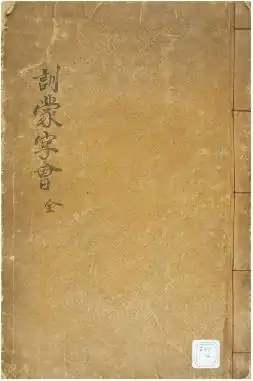 訓蒙字會 全